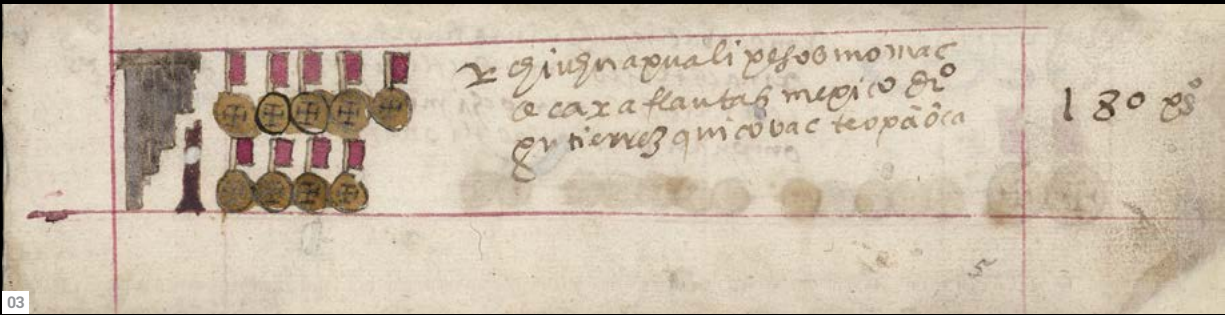 chiuhnapuali pesos momac
ce caxa flautas mexico dio
gutierrez quicovac teopā ōca
180 ps
03